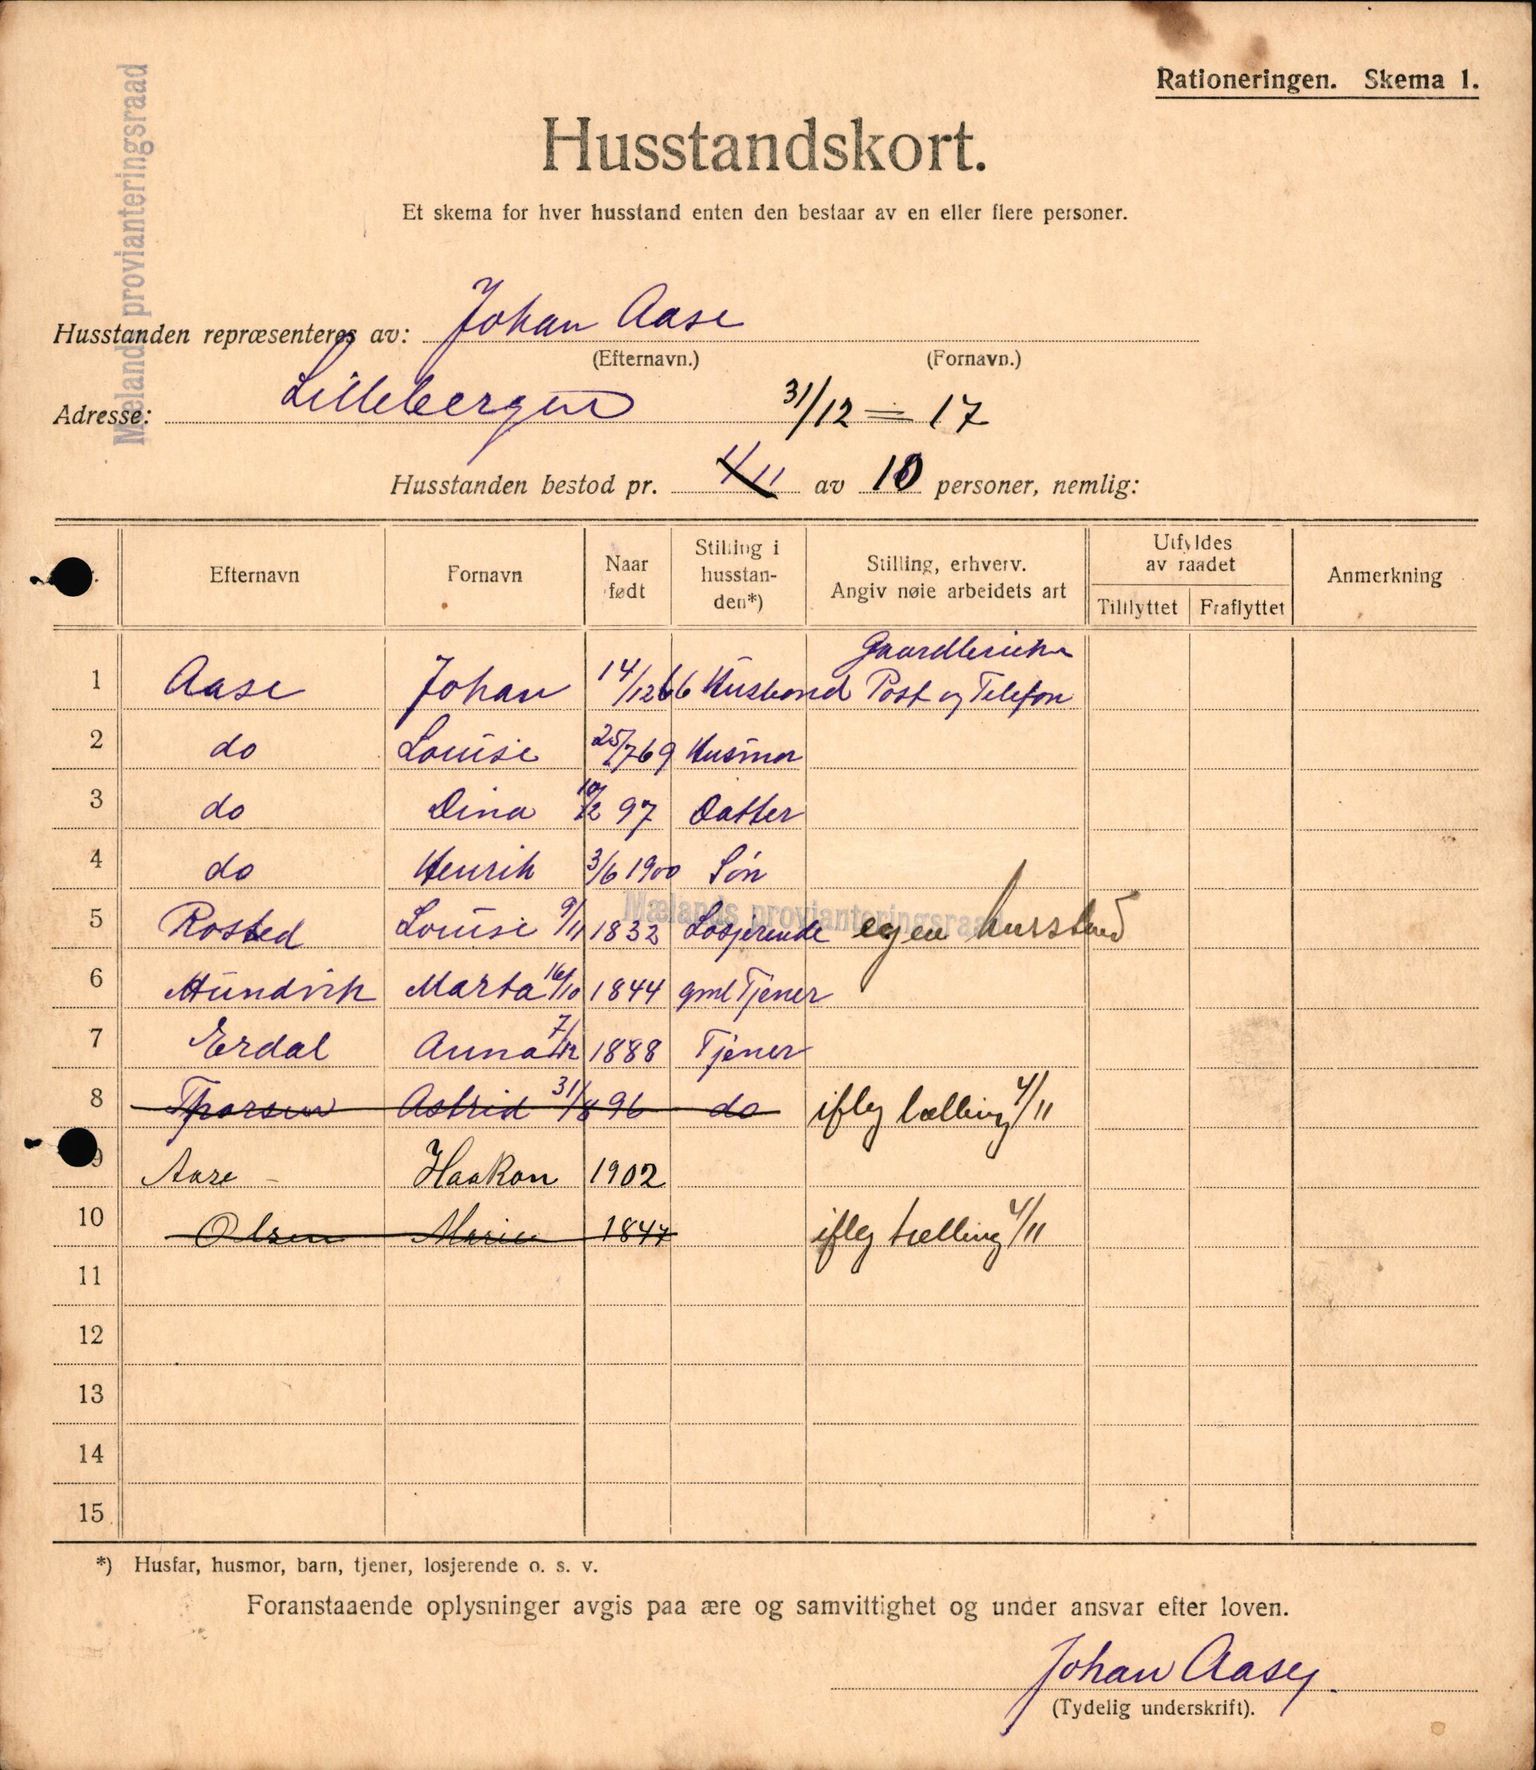 Mælands provianteringsraad
Rationeringen. Skema 1.
Husstandskort.
Et skema for hver husstand enten den bestaar av en eller flere personer.
Husstanden repræsenteres av: Johan Aase
(Efternavn.) (Fornavn.)
Adresse: Lillebergen 31/12 = 17
Husstanden bestod pr. 4/11 av 10 personer, nemlig:
Efternavn Fornavn Naar født Stilling i husstanden*) Stilling, erhverv. Angiv nøie arbeidets art Utfyldes av raadet Tilflyttet Fraflyttet Anmerkning
1 Aase Johan 14/12 66 Husbond Gaardbruker Post og Telefon
2 do Louise 25/7 69 Husmor
3 do Dina 10/2 97 Datter
4 do Henrik 3/6 1900 Søn
Mælands provianteringsraad
5 Rosted Louise 9/11 1832 Losjerende egen husstand
6 Mundvik Marta 16/10 1844 gml Tjener
7 Erdal Anna 7/12 1888 Tjener
8 Thorsen Astrid 31/8 96 do iflg tælling 4/11
9 Aase - Haakon 1902
10 Olsen Marie 1847 iflg tælling 4/11
11
12
13
14
15
*) Husfar, husmor, barn, tjener, losjerende o. s. v.
Foranstaaende oplysninger avgis paa ære og samvittighet og under ansvar efter loven.
Johan Aase
(Tydelig underskrift).